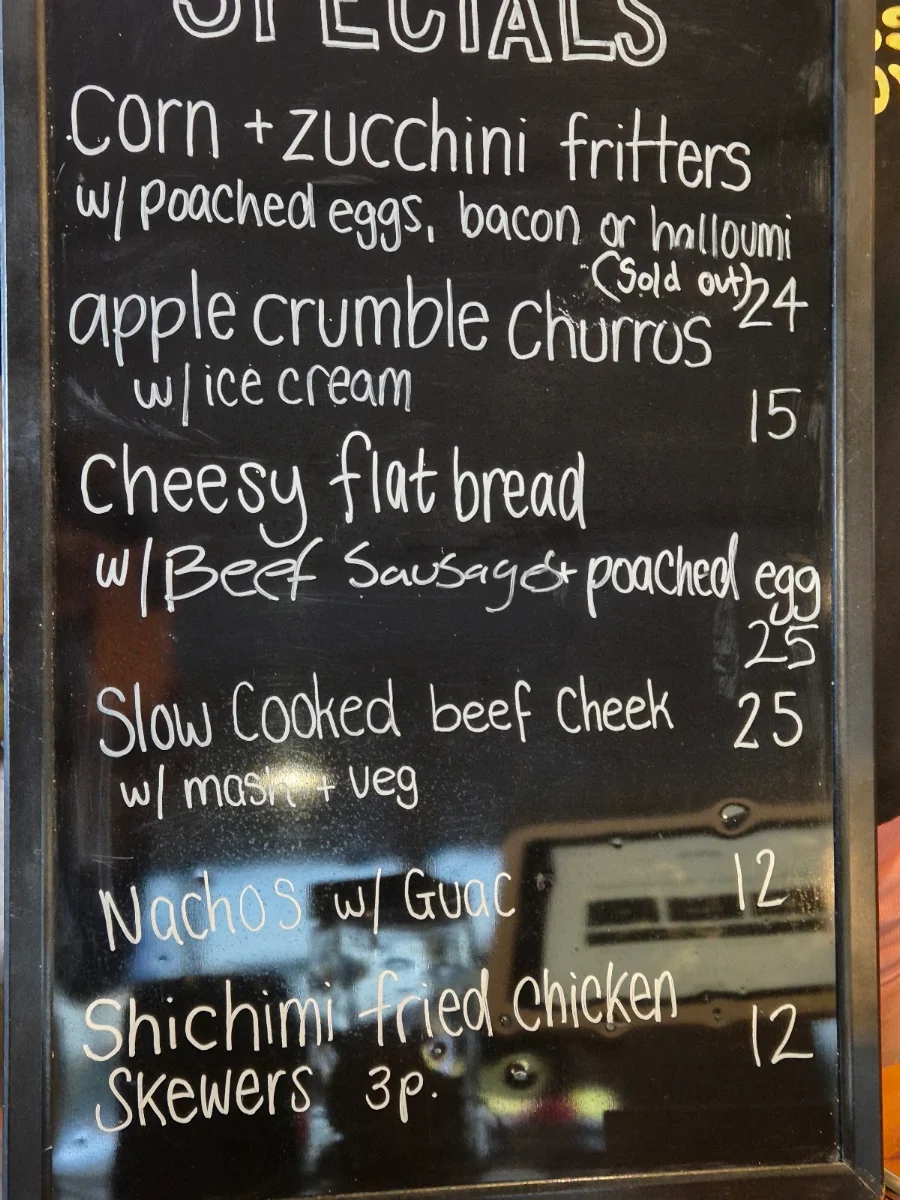 SPECIALS
Corn + zucchini fritters
w/ poached eggs, bacon or halloumi
(Sold out) 24
apple crumble Churros
w/ ice cream
15
cheesy flat bread
w/ Beef Sausage + poached egg
25
Slow Cooked beef Cheek 25
w/ mash + veg
Nachos w/ Guac 12
Shichimi fried chicken
12
Skewers 3p.